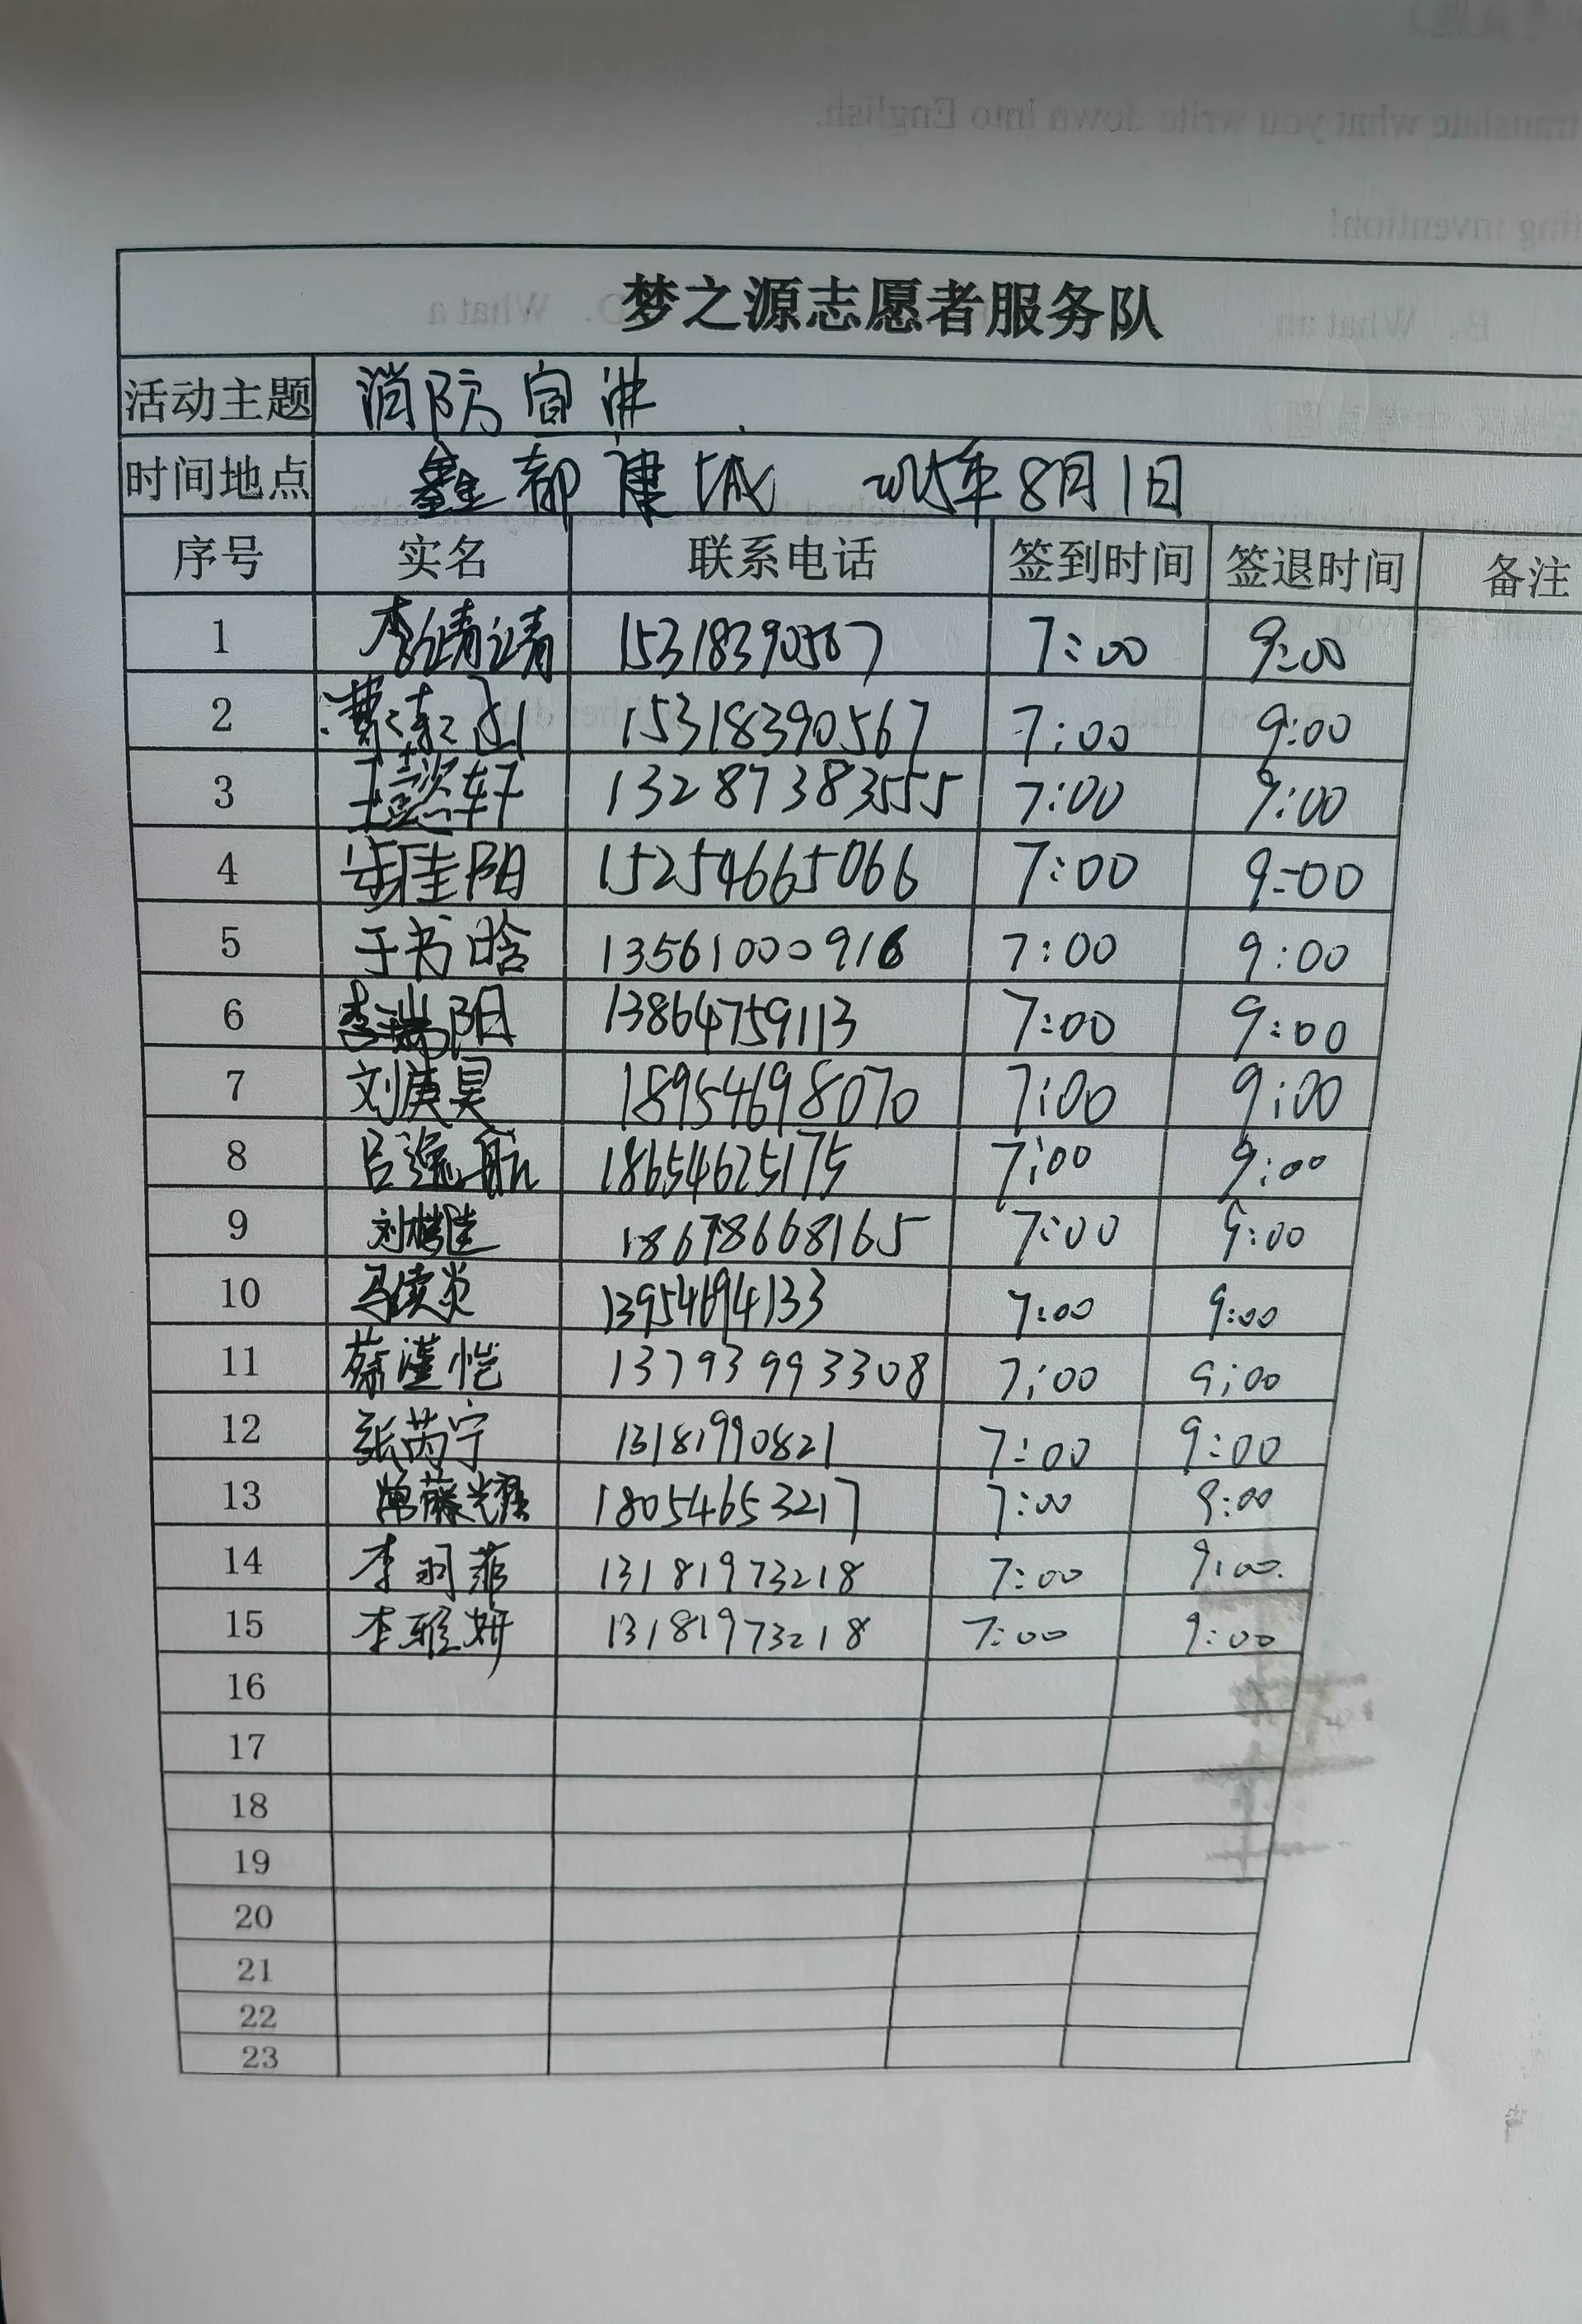 translate what you write down into English.
ting invention!
B. What an D. What a
梦之源志愿者服务队
活动主题 消防宣讲
时间地点 鑫都康城 2025年8月1日
序号 实名 联系电话 签到时间 签退时间 备注
1 15318390567 7:00 9:00
2 15318390567 7:00 9:00
3 王懿轩 13287383555 7:00 9:00
4 岳佳阳 15254665066 7:00 9:00
5 于书晗 13561000916 7:00 9:00
6 李瑞阳 13864759113 7:00 9:00
7 刘庚昊 18954698070 7:00 9:00
8 吕逸航 18654625175 7:00 9:00
9 18678668165 7:00 9:00
10 13954694133 7:00 9:00
11 蔡瑾恺 13793993308 7:00 9:00
12 张芮宁 13181990821 7:00 9:00
13 18054653217 7:00 9:00
14 李羽菲 13181973218 7:00 9:00
15 李雅妍 13181973218 7:00 9:00
16
17
18
19
20
21
22
23